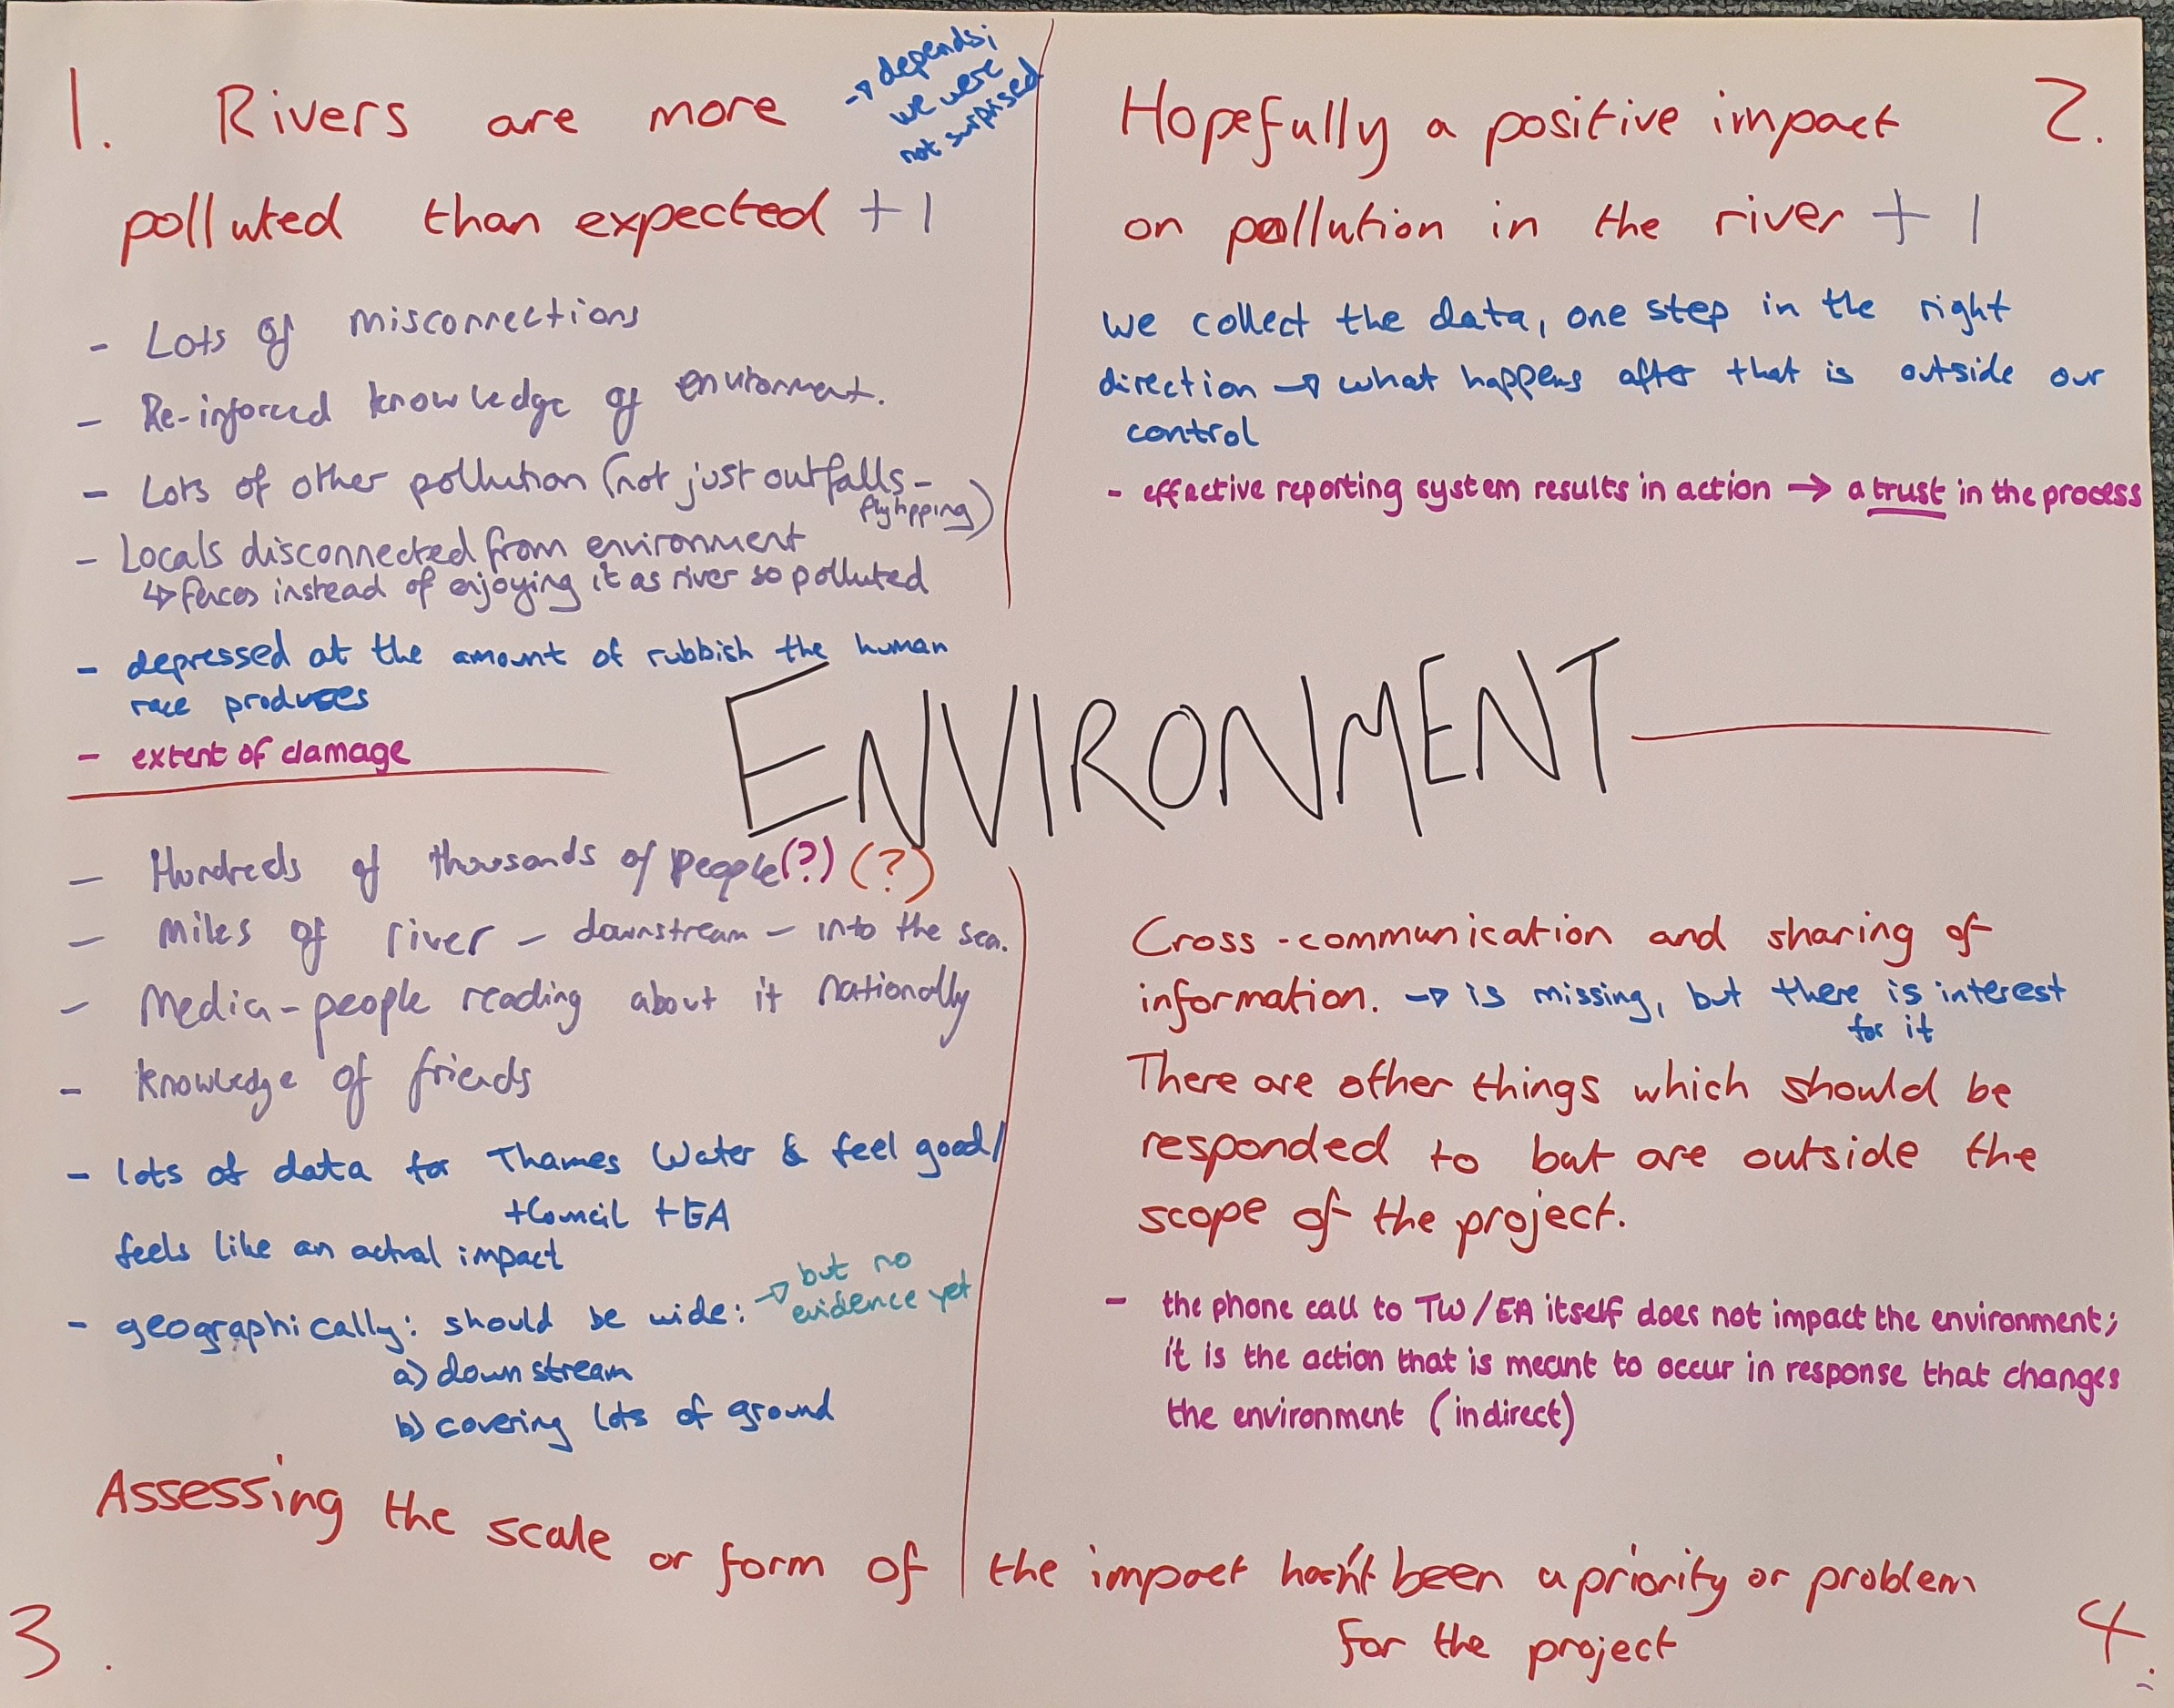 1. Rivers are more
→ depends;
we were
not surprised
polluted than expected +1
- Lots of misconnections
- Re-inforced knowledge of environment.
- Lots of other pollution (not just outfalls -
flytipping)
- Locals disconnected from environment
↳ fences instead of enjoying it as river so polluted
- depressed at the amount of rubbish the human
race produces
- extent of damage
Hopefully a positive impact 2.
on pollution in the river +1
we collect the data, one step in the right
direction → what happens after that is outside our
control
- effective reporting system results in action → a trust in the process
ENVIRONMENT
- Hundreds of thousands of people (?) (?)
- Miles of river - downstream - into the sea.
- Media - people reading about it nationally
- knowledge of friends
- lots of data for Thames Water & feel good/
+Council +EA
feels like an actual impact
- geographically: should be wide: → but no
evidence yet
a) down stream
b) covering lots of ground
Cross-communication and sharing of
information. → is missing, but there is interest
for it
There are other things which should be
responded to but are outside the
scope of the project.
- the phone call to TW/EA itself does not impact the environment;
it is the action that is meant to occur in response that changes
the environment (indirect)
Assessing the scale or form of the impact hasn't been a priority or problem
for the project
3.
4.